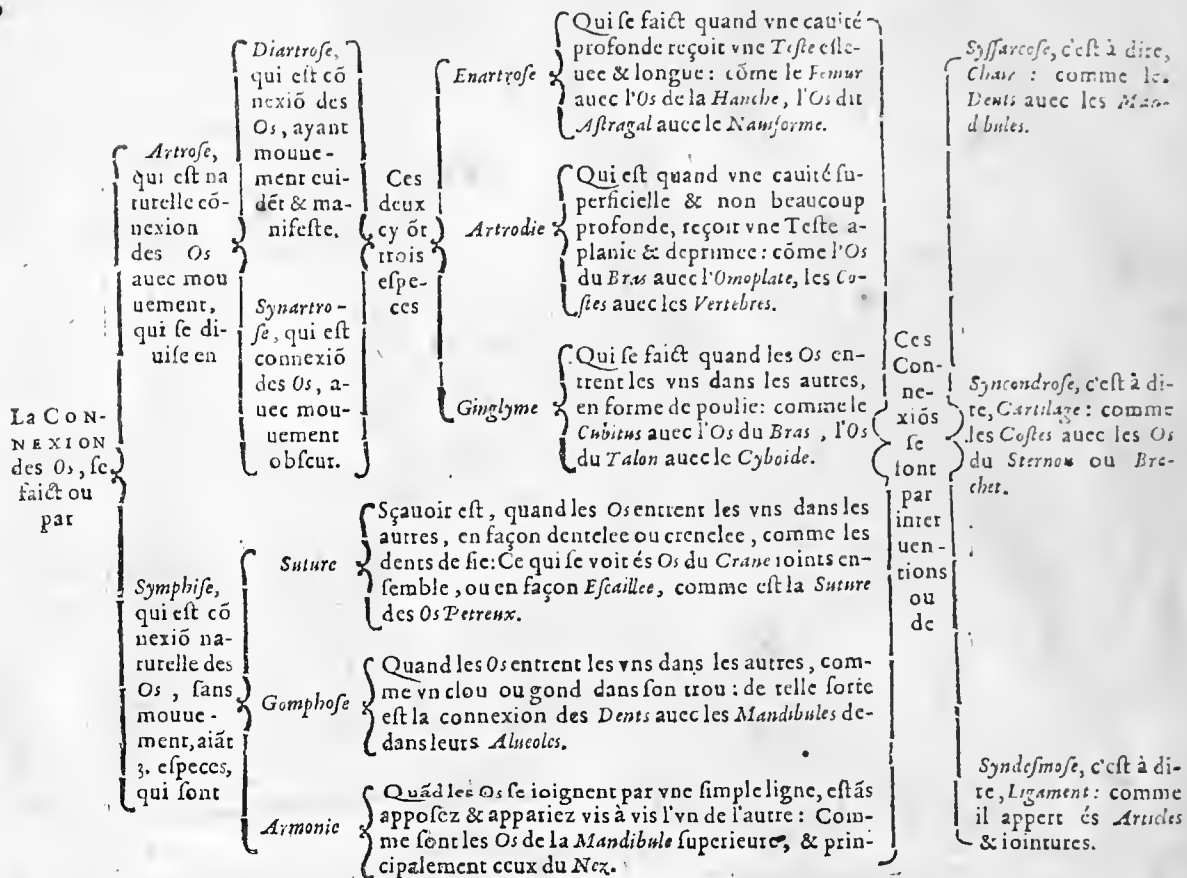 La CON-
NEXION
des Os, ſe
faict ou
par
Artroſe,
qui eſt na
turelle cõ-
nexion
des Os
auec mou
uement,
qui ſe di-
uiſe en
Diartroſe,
qui eſt cõ
nexiõ des
Os, ayant
mouue-
ment eui-
dẽt & ma-
nifeſte.
Synartro-
ſe, qui eſt
connexiõ
des Os, a-
uec mou-
uement
obſcur.
Ces
deux
cy õt
trois
eſpe-
ces
Enartroſe
Qui ſe faict quand vne cauité
profonde reçoit vne Teſte eſle-
uee & longue : cõme le Femur
auec l'Os de la Hanche, l'Os dit
Aſtragal auec le Nauiforme.
Artrodie
Qui eſt quand vne cauité ſu-
perficielle & non beaucoup
profonde, reçoit vne Teſte a-
planie & deprimee : cõme l'Os
du Bras auec l'Omoplate, les Co-
ſtes auec les Vertebres.
Ginglyme
Qui ſe faict quand les Os en-
trent les vns dans les autres,
en forme de poulie: comme le
Cubitus auec l'Os du Bras, l'Os
du Talon auec le Cyboide.
Symphiſe,
qui eſt cõ
nexiõ na-
turelle des
Os, ſans
mouue-
ment, aiãt
3. eſpeces,
qui ſont
Suture
Sçauoir eſt, quand les Os entrent les vns dans les
autres, en façon dentelee ou crenelee, comme les
dents de ſie: Ce qui ſe voit és Os du Crane ioints en-
ſemble, ou en façon Eſcaillee, comme eſt la Suture
des Os Petreux.
Gomphoſe
Quand les Os entrent les vns dans les autres, com-
me vn clou ou gond dans ſon trou : de telle ſorte
eſt la connexion des Dents auec les Mandibules de-
dans leurs Alueoles.
Armonie
Quãd les Os ſe ioignent par vne ſimple ligne, eſtãs
appoſez & appariez vis à vis l'vn de l'autre : Com-
me ſont les Os de la Mandibule ſuperieure, & prin-
cipalement ceux du Nez.
Ces
Con-
ne-
xiõs
ſe
font
par
inter
uen-
tions
ou
de
Syſſarcoſe, c'eſt à dire,
Chair : comme les
Dents auec les Man-
dibules.
Syncondroſe, c'eſt à di-
re, Cartilage : comme
les Coſtes auec les Os
du Sternon ou Bre-
chet.
Syndeſmoſe, c'eſt à di-
re, Ligament : comme
il appert és Articles
& iointures.